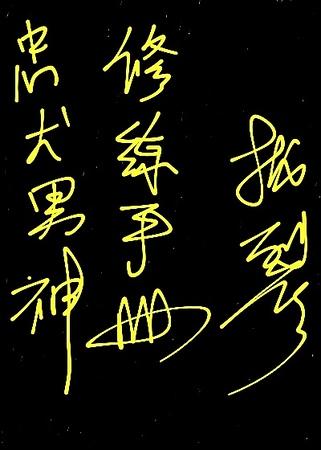 忠犬男神
修練手册